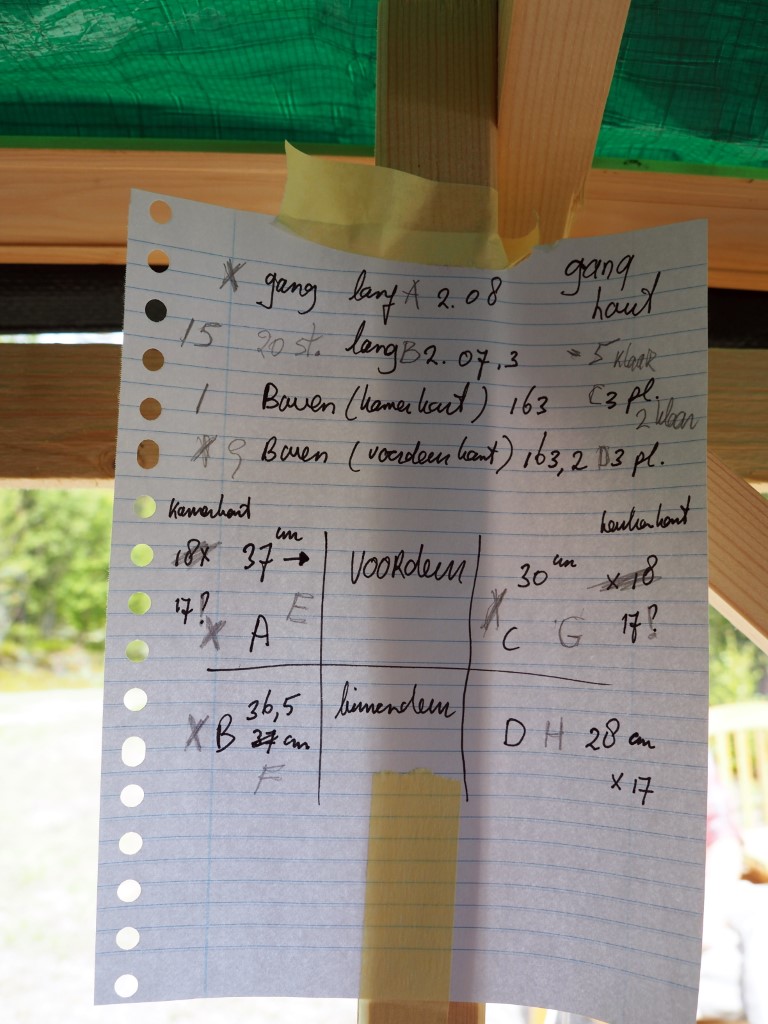 X gang lang A 2.08 gang hout
15 20 st. lang B 2.07,3 = 5 klaar
1 Boven (kamerkant) 163 C 3 pl. 2 klaar
X 9 Boven (voordeurkant) 163,2 D 3 pl.
Kamerkant keukenkant
18x 37 cm → VOORdeur 30 cm x 18
17? X A E X C G 17?
36,5 binnendeur
X B 37 cm D H 28 cm
F x 17